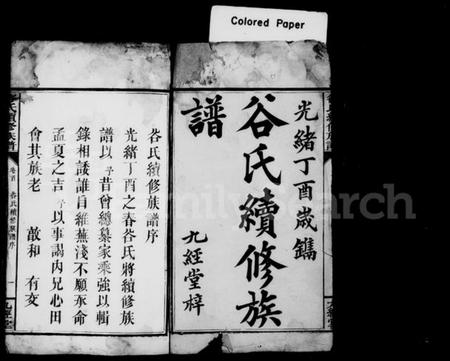 Colored Paper
光緒丁酉歲鐫
谷氏續修族
譜
九經堂梓
谷氏續修族譜序
光緒丁酉之春谷氏將續修族
譜以予昔曾總纂家乘強以輯
錄相諉誰自維蕪淺不願奈命
孟夏之吉予以事謁內兄心田
會其族老 啟和 有交
谷氏續修族譜
卷首 谷氏續修族譜序
九經堂
FamilySearch